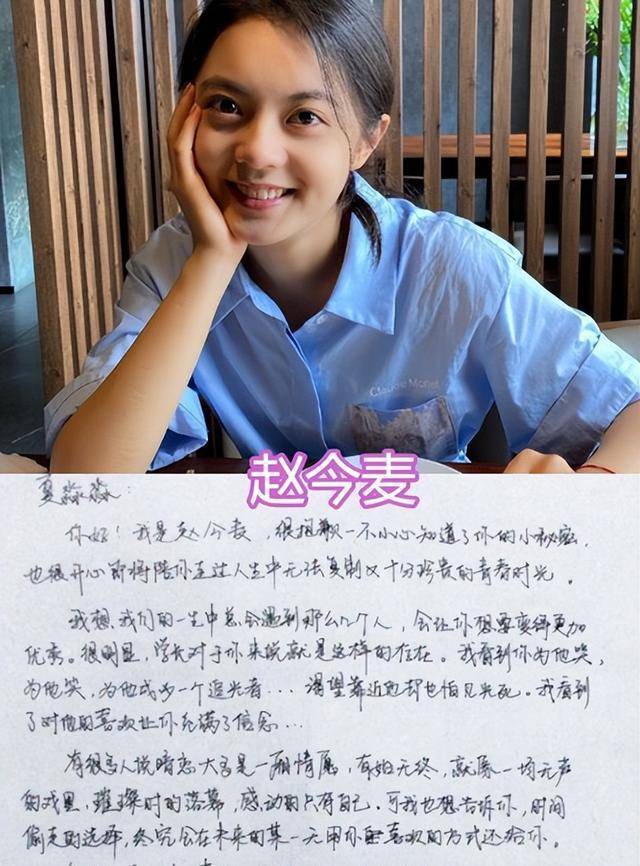 Claude Monet
赵今麦
夏淼淼：
你好！我是赵今麦，很抱歉一不小心知道了你的小秘密，
也很开心即将陪你走过人生中无法复制又十分珍贵的青春时光。
我想，我们的一生中总会遇到那么几个人，会让你想要变得更加
优秀。很明显，学长对于你来说就是这样的存在。我看到你为他哭，
为他笑，为他成为一个追光者...渴望靠近他却也怕见光死。我看到
了对他的喜欢让你充满了信念...
有很多人说暗恋大多是一厢情愿，有始无终，就像一场无声
的戏里，璀璨时的落幕，感动的只有自己，可我也想告诉你，时间
偷走的选择，终究会在未来的某一天用你喜欢的方式还给你。